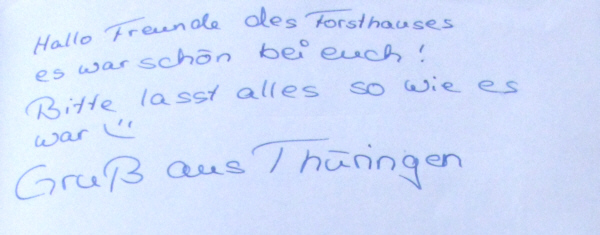 Hallo Freunde des Forsthauses
es war schön bei euch!
Bitte lasst alles so wie es
war
Gruß aus Thüringen